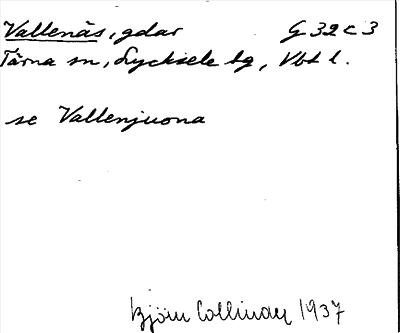 Vallenäs, gdar G 32 c 3
Tärna sn, Lycksele lg, Vbt l.
se Vallenjuona
Björn Collinder 1937